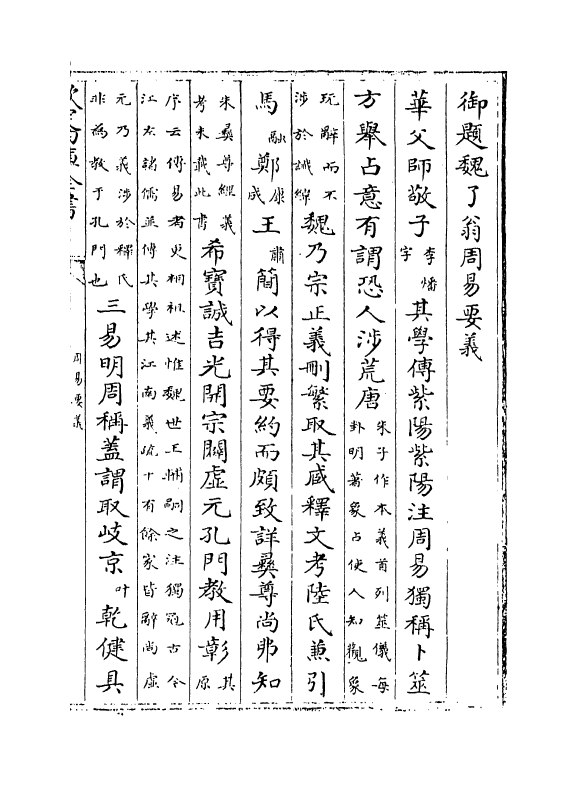 御題魏了翁周易要義
華父師敬子李燔字其學傳紫陽紫陽注周易獨稱卜筮
方舉占意有謂恐人涉荒唐朱子作本義首列筮儀每卦明著象占使人知觀象
玩辭而不涉於讖緯魏乃宗正義刪繁取其咸釋文考陸氏兼引
馬融鄭康成王肅簡以得其要約而頗致詳彞尊尚弗知
朱彞尊經義考未載此書希寶誠吉光開宗闢虛元孔門教用彰其原
序云傳易者更相祖述惟魏世王輔嗣之注獨冠古今江左諸儒並傳其學其江南義疏十有餘家皆辭尚虛
元乃義涉於釋氏非為教于孔門也三易明周稱蓋謂取岐京叶乾健具
周易要義